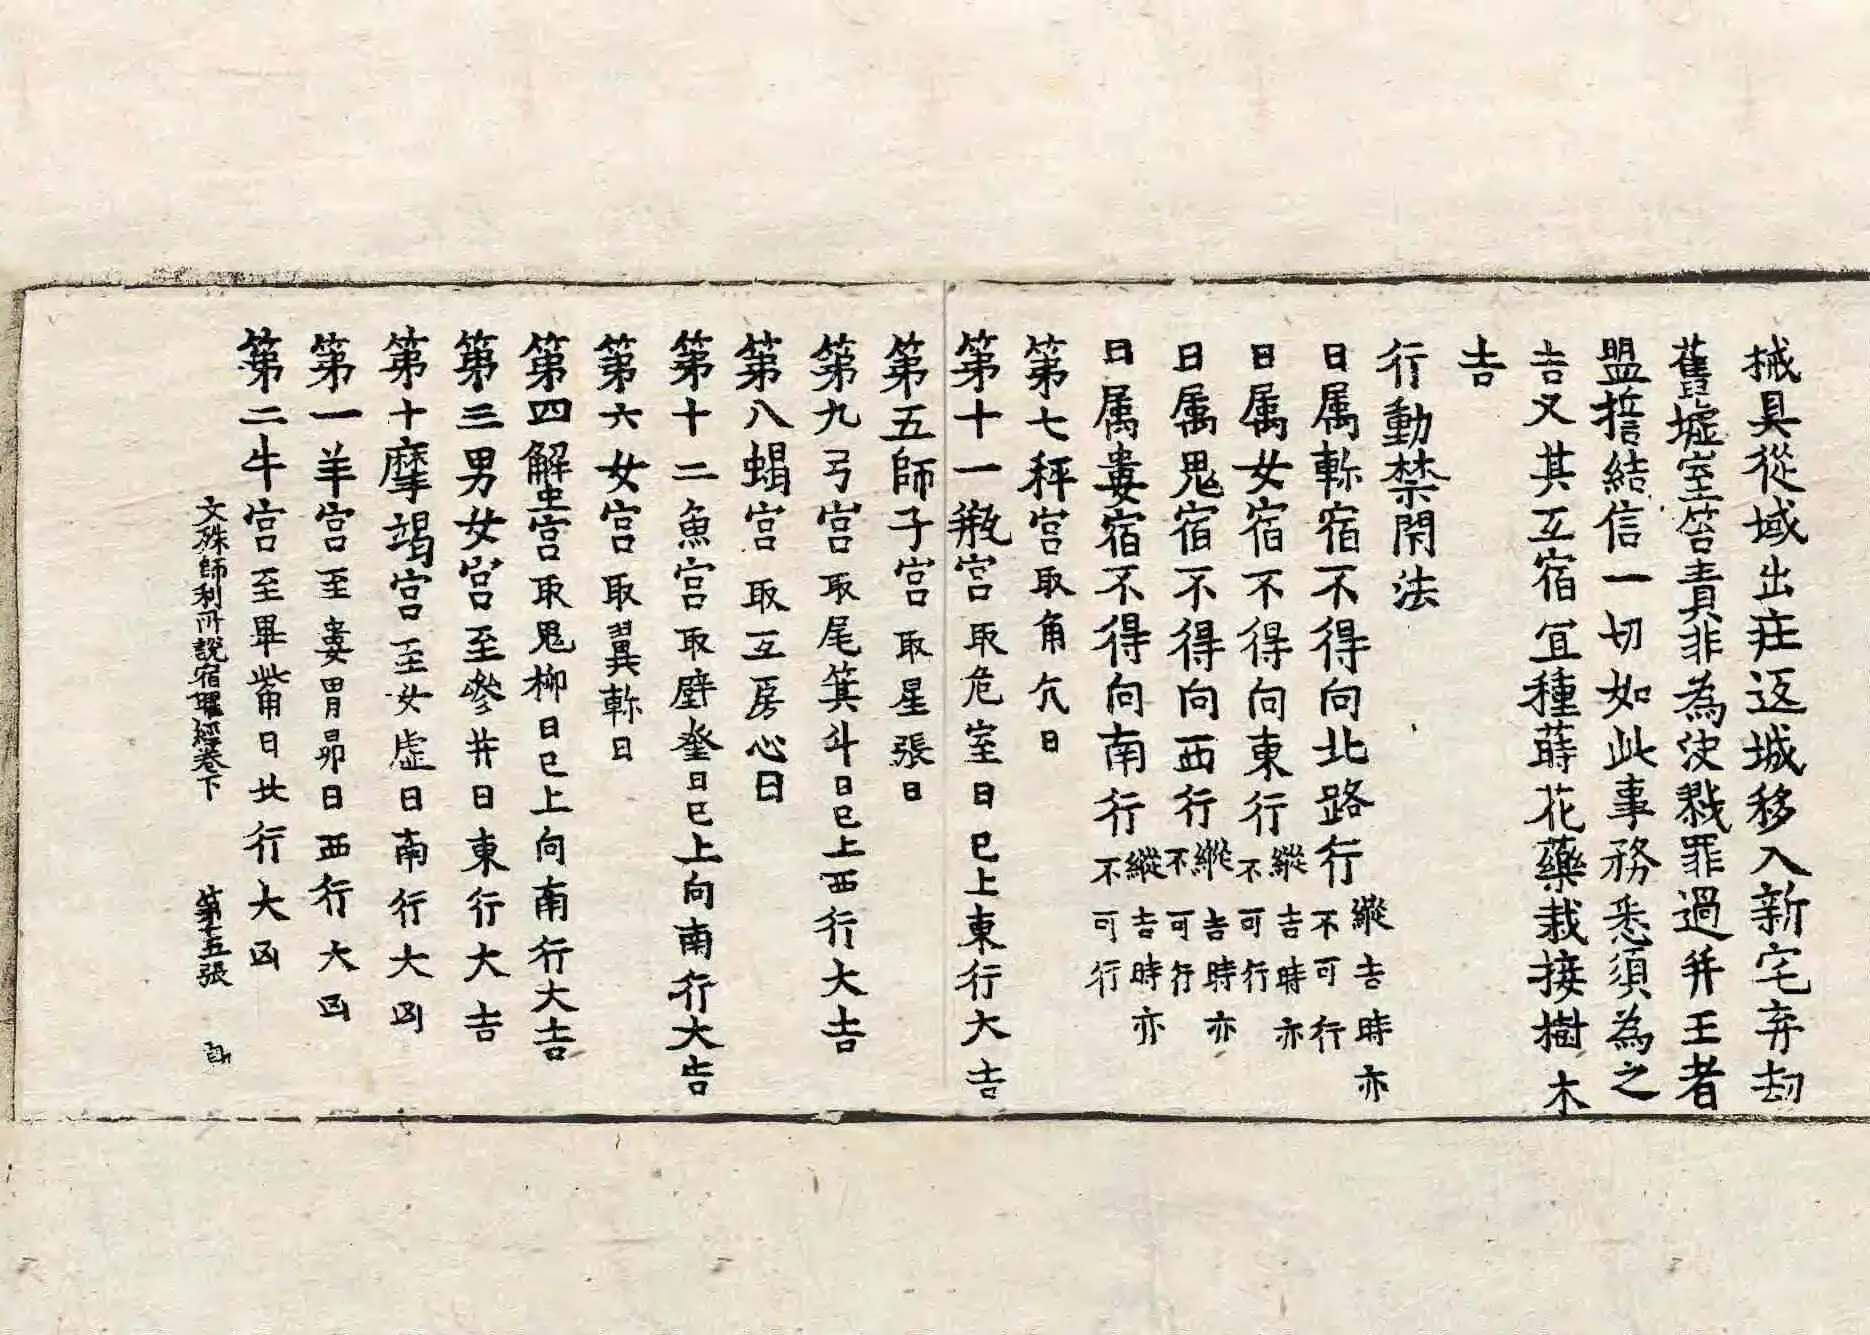 械具從域出庄返城移入新宅弃刧
舊墟室笞責非為決戮罪過并王者
盟誓結信一切如此事務悉須為之
吉又其互宿冝種蒔花藥栽接樹木
吉
行動禁閇法
日属軫宿不得向北路行縱吉時亦不可行
日属女宿不得向東行縱吉時亦不可行
日属鬼宿不得向西行縱吉時亦不可行
日属婁宿不得向南行縱吉時亦不可行
第七秤宫取角亢日
第十一瓶宫取危室日巳上東行大吉
第五師子宫取星張日
第九弓宫取尾箕斗日巳上西行大吉
第八蝎宫取互房心日
第十二魚宫取壁奎日巳上向南行大吉
第六女宫取翼軫日
第四蟹宫取鬼柳日巳上向南行大吉
第三男女宫至參井日東行大吉
第十摩竭宫至女虛日南行大凶
第一羊宫至婁胃昴日西行大凶
第二牛宫至畢觜日北行大凶
文殊師利所説宿曜經卷下 第十五張